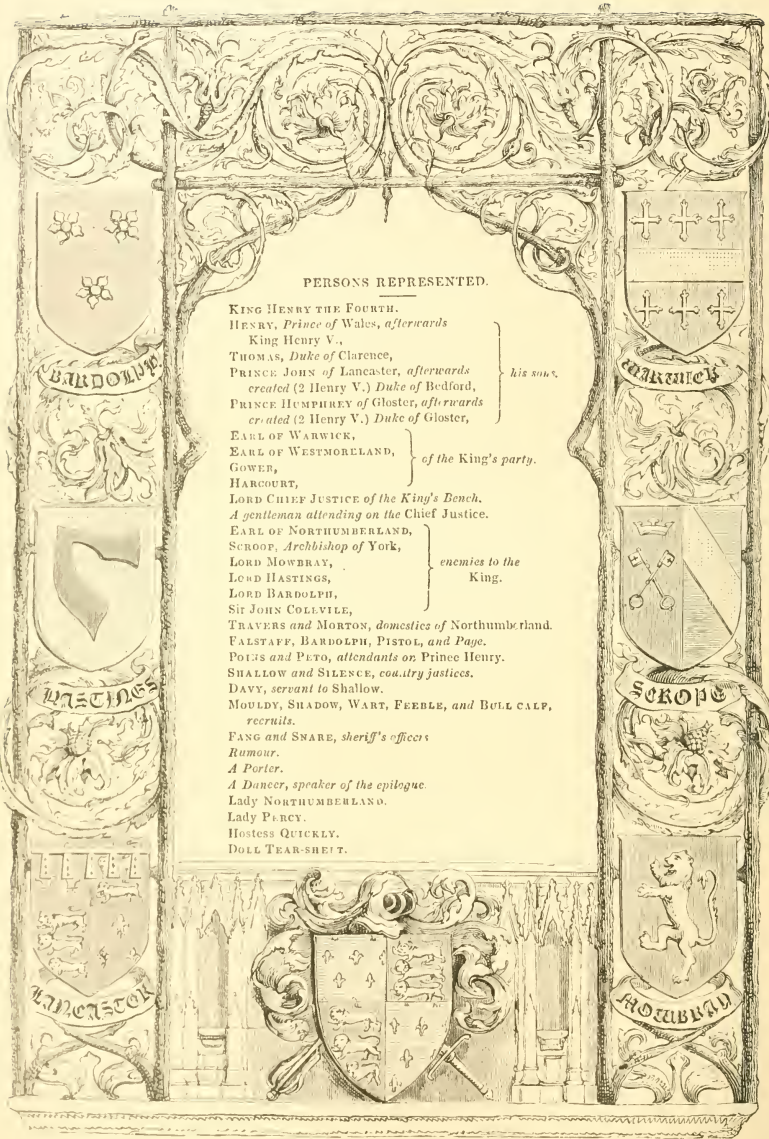 PERSONS REPRESENTED.
KING HENRY THE FOURTH.
HENRY, Prince of Wales, afterwards
King Henry V.,
THOMAS, Duke of Clarence,
PRINCE JOHN of Lancaster, afterwards
created (2 Henry V.) Duke of Bedford,
PRINCE HUMPHREY of Gloster, afterwards
created (2 Henry V.) Duke of Gloster,
his sons.
EARL OF WARWICK,
EARL OF WESTMORELAND,
GOWER,
HARCOURT,
of the King's party.
LORD CHIEF JUSTICE of the King's Bench.
A gentleman attending on the Chief Justice.
EARL OF NORTHUMBERLAND,
SCROOP, Archbishop of York,
LORD MOWBRAY,
LORD HASTINGS,
LORD BARDOLPH,
Sir JOHN COLEVILE,
enemies to the
King.
TRAVERS and MORTON, domestics of Northumberland.
FALSTAFF, BARDOLPH, PISTOL, and Page.
POINS and PETO, attendants on Prince Henry.
SHALLOW and SILENCE, country justices.
DAVY, servant to Shallow.
MOULDY, SHADOW, WART, FEEBLE, and BULL CALF,
recruits.
FANG and SNARE, sheriff's officers
Rumour.
A Porter.
A Dancer, speaker of the epilogue.
Lady NORTHUMBERLAND.
Lady PERCY.
Hostess QUICKLY.
DOLL TEAR-SHEET.
BARDOLPH
HASTINGS
LANCASTOR
WARWICK
SCROPE
MOWBRAY